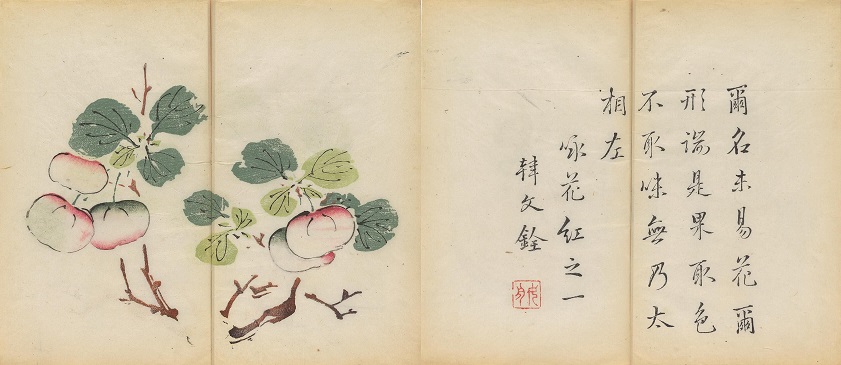 爾名未易花爾
形端是果取色
不取味無乃太
相左
咏花紅之一
韓文銓